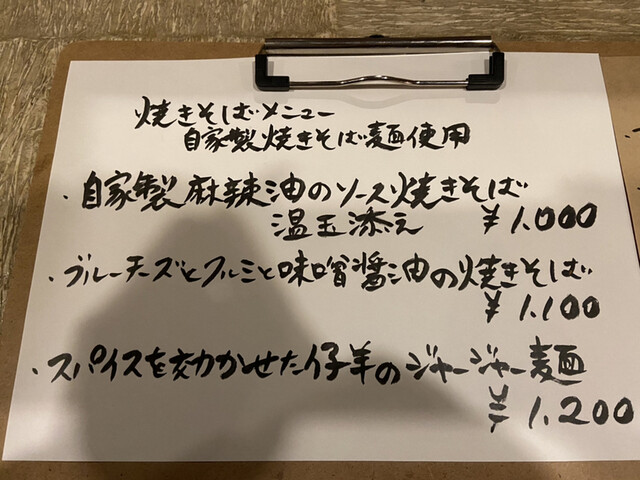 焼きそばメニュー
自家製焼きそば麺使用
・自家製麻辣油のソース焼きそば
温玉添え ¥1.000
・ブルーチーズとクルミと味噌醤油の焼きそば
¥1.100
・スパイスを効かせた仔羊のジャージャー麺
¥1.200